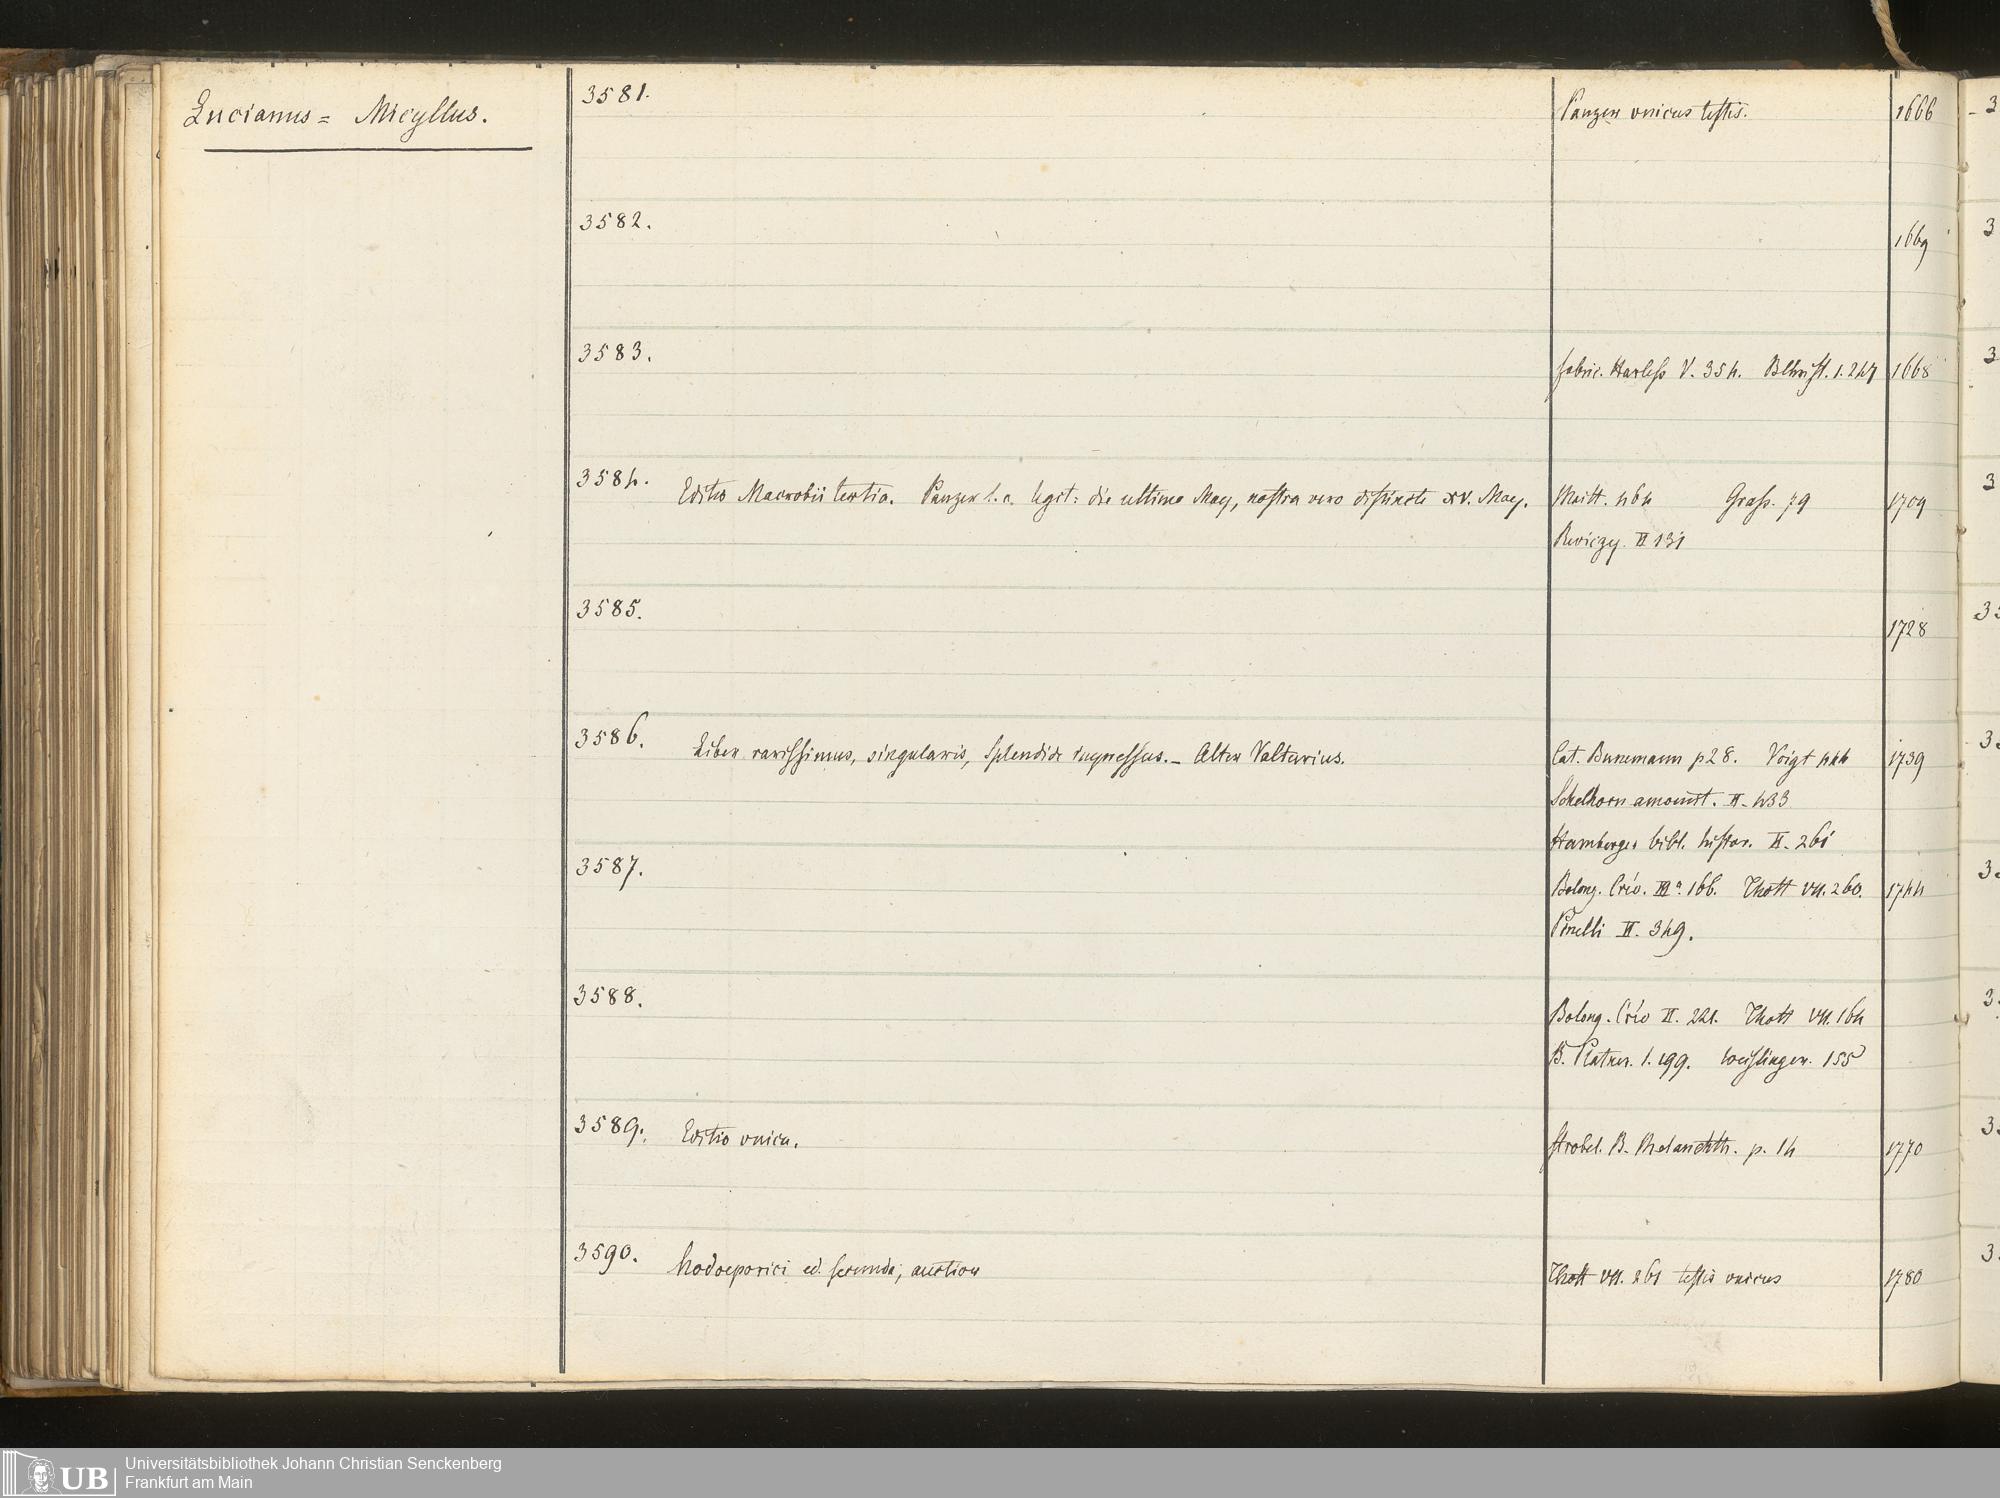 Lucianus = Micyllus.
3581. Panzer unicus testis. 1666
3582. 1669
3583. Fabric. Harless V. 354. B Christ. 1. 247 1668
3584. Editio Macrobii tertia. Panzer l. c. legit: die ultimo May, nostra vero distincte xv. May. Maitt. 464 Grass. 79 1709
Reviczy. II 131
3585. 1728
3586. Liber rarissimus, singularis, splendide impressus. – Alter Valturius. Cat. Bunemann p 28. Voigt 1739
Schelhorn amoenit. II. 433
Hamberger bibl. histor. II. 261
3587. Bolong. Crev. III a 166. Thott VII. 260. 1744
Pinelli II. 349.
3588. Bolong. Crev II. 221. Thott VII. 164
B. Platner. 1. 199. Weislinger. 155
3589. Editio unica. Strobel. B. Melanchth. p. 14 1770
3590. Hodoeporici ed. secunda, auctior Thott VII. 261 testis unicus 1780
- 3
3
3
3
35
35
35
3
35
3
UB
Universitätsbibliothek Johann Christian Senckenberg
Frankfurt am Main